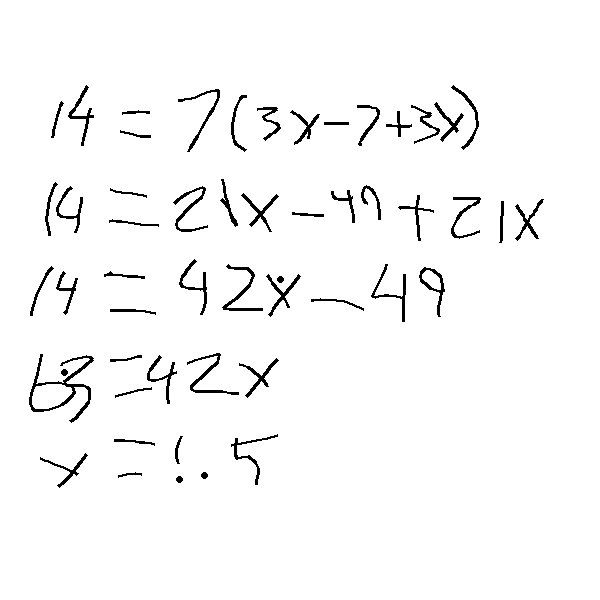 14 = 7(3x-7+3x)
14 = 21x - 49 + 21x
14 = 42x - 49
63 = 42x
x = 1.5